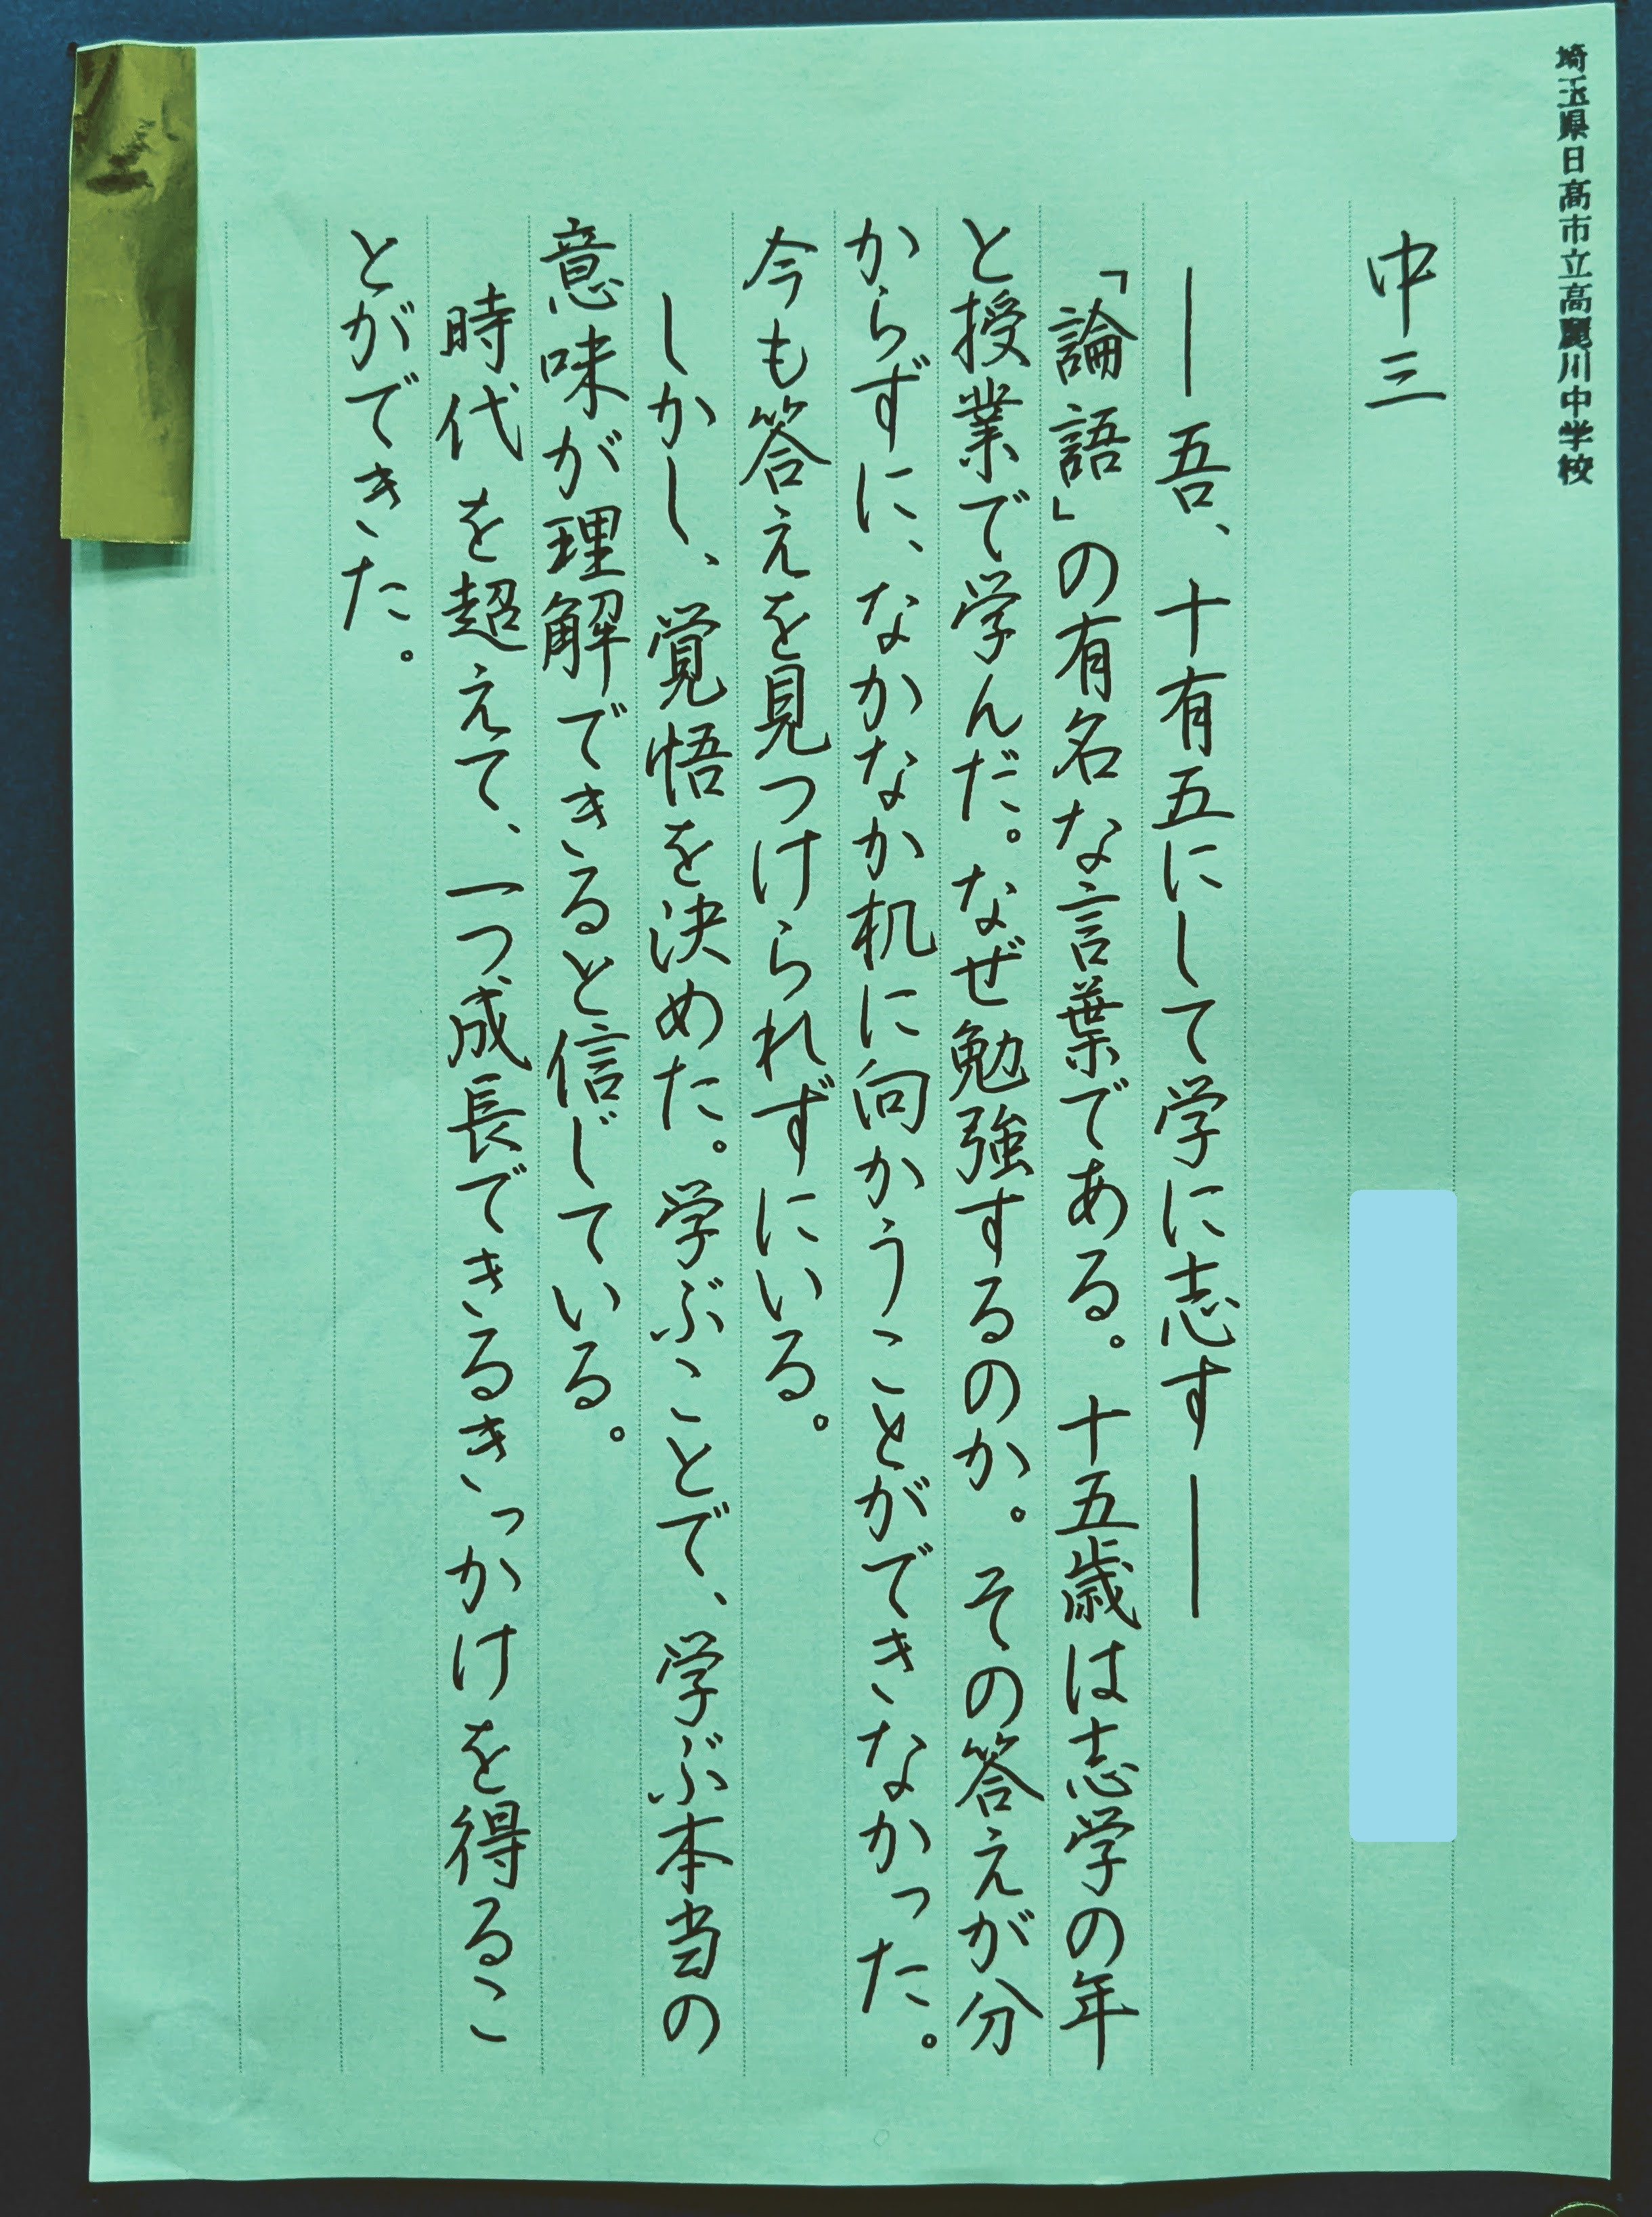 埼玉県日高市立高麗川中学校
中三
―吾、十有五にして学に志す―
「論語」の有名な言葉である。十五歳は志学の年
と授業で学んだ。なぜ勉強するのか。その答えが分
からずに、なかなか机に向かうことができなかった。
今も答えを見つけられずにいる。
しかし、覚悟を決めた。学ぶことで、学ぶ本当の
意味が理解できると信じている。
時代を超えて、一つ成長できるきっかけを得るこ
とができた。